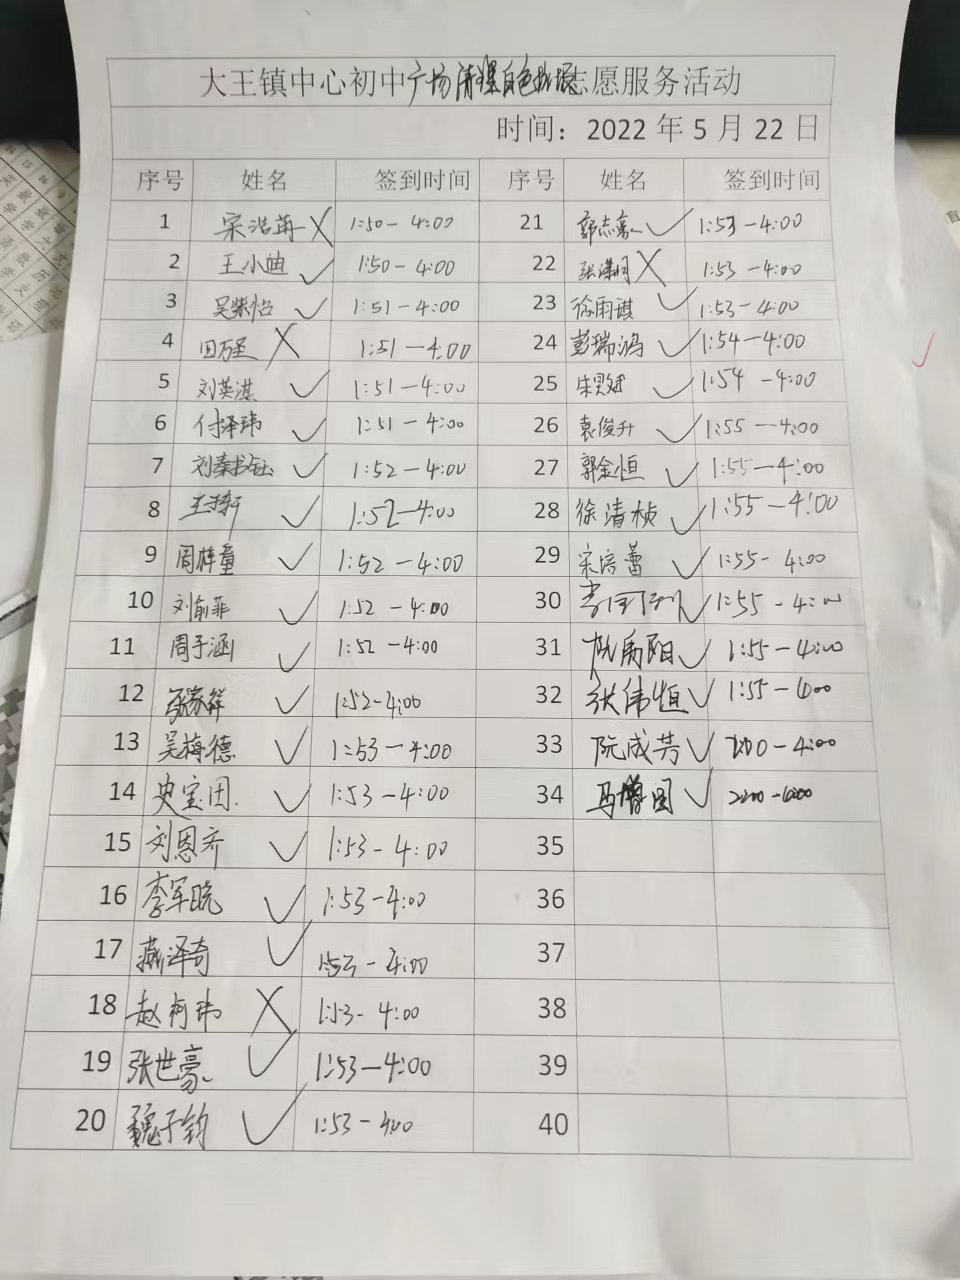 大王镇中心初中广场清理白色垃圾志愿服务活动
时间：2022 年 5 月 22 日
序号 姓名 签到时间 序号 姓名 签到时间
1 宋浩苒 X 1:50-4:00 21 郭志豪 ✓ 1:53-4:00
2 王小迪 ✓ 1:50-4:00 22 张潇月 X 1:53-4:00
3 吴紫怡 ✓ 1:51-4:00 23 徐雨祺 ✓ 1:53-4:00
4 田万圣 X 1:51-4:00 24 彭瑞鸿 ✓ 1:54-4:00
5 刘英淇 ✓ 1:51-4:00 25 朱昊斌 ✓ 1:54-4:00
6 付泽玮 ✓ 1:51-4:00 26 袁俊升 ✓ 1:55-4:00
7 刘秦书钰 ✓ 1:52-4:00 27 郭金恒 ✓ 1:55-4:00
8 王 ✓ 1:52-4:00 28 徐清桢 ✓ 1:55-4:00
9 周梓童 ✓ 1:52-4:00 29 宋培蕾 ✓ 1:55-4:00
10 刘俞菲 ✓ 1:52-4:00 30 李 1:55-4:00
11 周子涵 ✓ 1:52-4:00 31 禹阳 ✓ 1:55-4:00
12 张家祥 ✓ 1:52-4:00 32 张伟恒 ✓ 1:55-4:00
13 吴梅德 ✓ 1:53-4:00 33 阮成芳 ✓ 2:00-4:00
14 史宝团 ✓ 1:53-4:00 34 马增国 ✓ 2:00-4:00
15 刘恩齐 ✓ 1:53-4:00 35
16 李军晓 ✓ 1:53-4:00 36
17 燕泽奇 ✓ 1:53-4:00 37
18 赵柯玮 X 1:53-4:00 38
19 张世豪 ✓ 1:53-4:00 39
20 魏子钧 ✓ 1:53-4:00 40